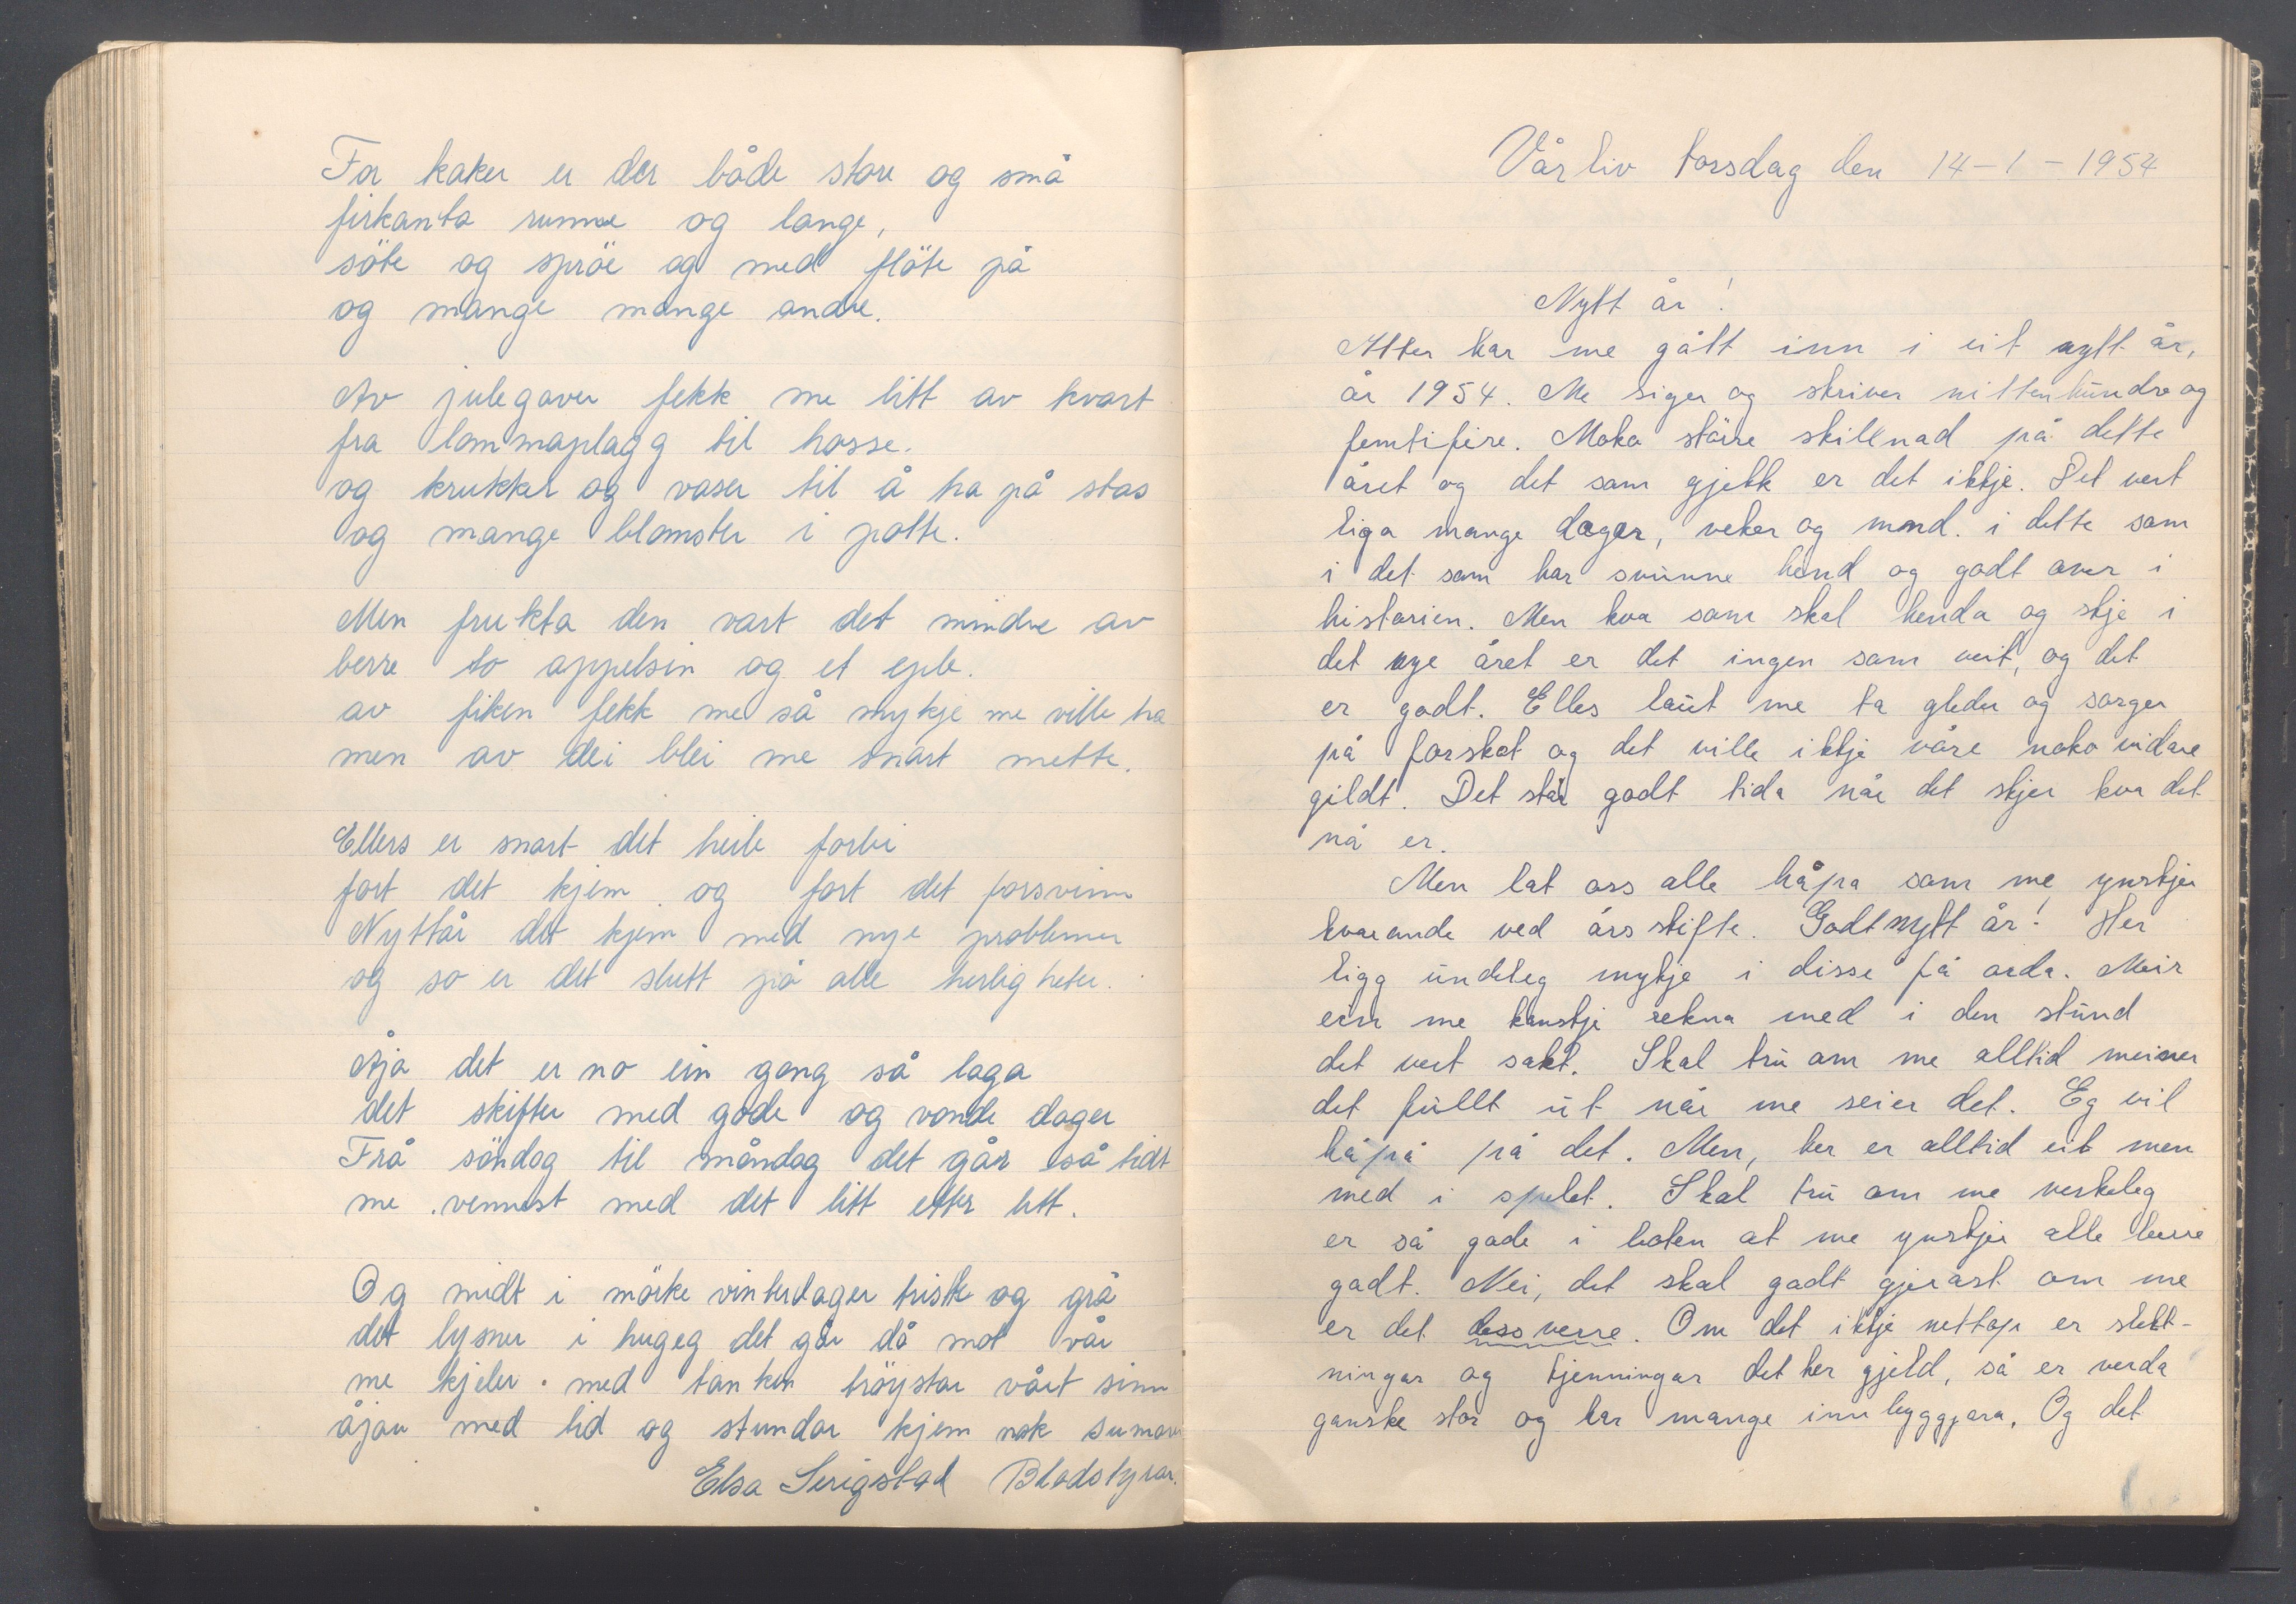 For kaker er der både store og små
firkanta runne og lange,
söte og spröe og med flöte på
og mange mange andre.
Av julegaver fekk me litt av kvart
fra lommaplagg til hosse.
og krukker og vaser til å ha på stas
og mange blomster i potte.
Men frukta den vart det mindre av
berre to appelsin og et eple.
av fiken fekk me så mykje me ville ha
men av dei blei me snart mette.
Ellers er snart det heile forbi
fort det kjem og fort det forsvinn
Nyttår det kjem med nye problemer
og so er det slutt på alle herligheter.
Åja det er no ein gong så laga
det skifter med gode og vonde dager
Frå söndag til måndag det går så tidt
me vennest med det litt etter litt.
Og midt i mörke vinterdager triste og grå
det lysner i hugeg det går då mot vår
me kjeler med tanken tröystar vårt sinn
åjau med tid og stundar kjem nok sumaren
Elsa Serigstad Bladstyrar.
Vår liv torsdag den 14-1-1954
Nytt år!
Atter har me gått inn i eit nytt år,
år 1954. Me siger og skriver nittenhundreog
femtifire. Moko större skillnad på dette
året og det som gjekk er det ikkje. Det vert
liga mange dager, veker og mnd. i dette som
i det som har svunne hend og godt over i
historien. Men kva som skal henda og skje i
det nye året er det ingen som veit, og det
er godt. Elles laut me ta gleder og sorger
på forskot og det ville ikkje våre noko vidare
gildt. Det står godt tida når det skjer kva det
nå er.
Men lat oss alle håpa som me ynskjer
kvarande ved årsskifte. Godt nytt år! Her
ligg undeleg mykje i disse få orda. Meir
enn me kanskje rekna med i den stund
det vert sakt. Skal tru om me alltid meiner
det fullt ut når me seier det. Eg vil
håpå på det. Men, her er alltid eit men
med i spelet. Skal tru om me verkeleg
er så gode i boten at me ynskjer alle berre
godt. Nei, det skal godt gjerast om me
er det dessverre. Om det ikkje nettop er slekt-
ningar og kjenningar det her gjeld, så er verda
ganske stor og har mange innbyggjara. Og det